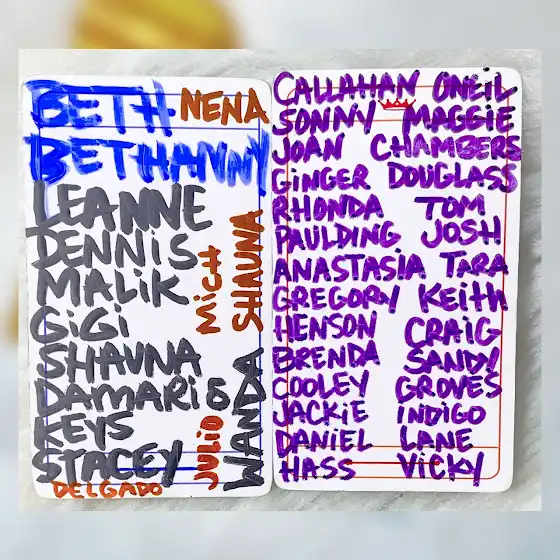 BETH NENA
BETHANNY
LEANNE
DENNIS
MALIK
GIGI
SHAUNA
DAMARIS
KEYS
STACEY
DELGADO
MICH
SHAUNA
JULIO
WANDA
CALLAHAN ONEIL
SONNY MAGGIE
JOAN CHAMBERS
GINGER DOUGLASS
RHONDA TOM
PAULDING JOSH
ANASTASIA TARA
GREGORY KEITH
HENSON CRAIG
BRENDA SANDY
COOLEY GROVES
JACKIE INDIGO
DANIEL LANE
HASS VICKY